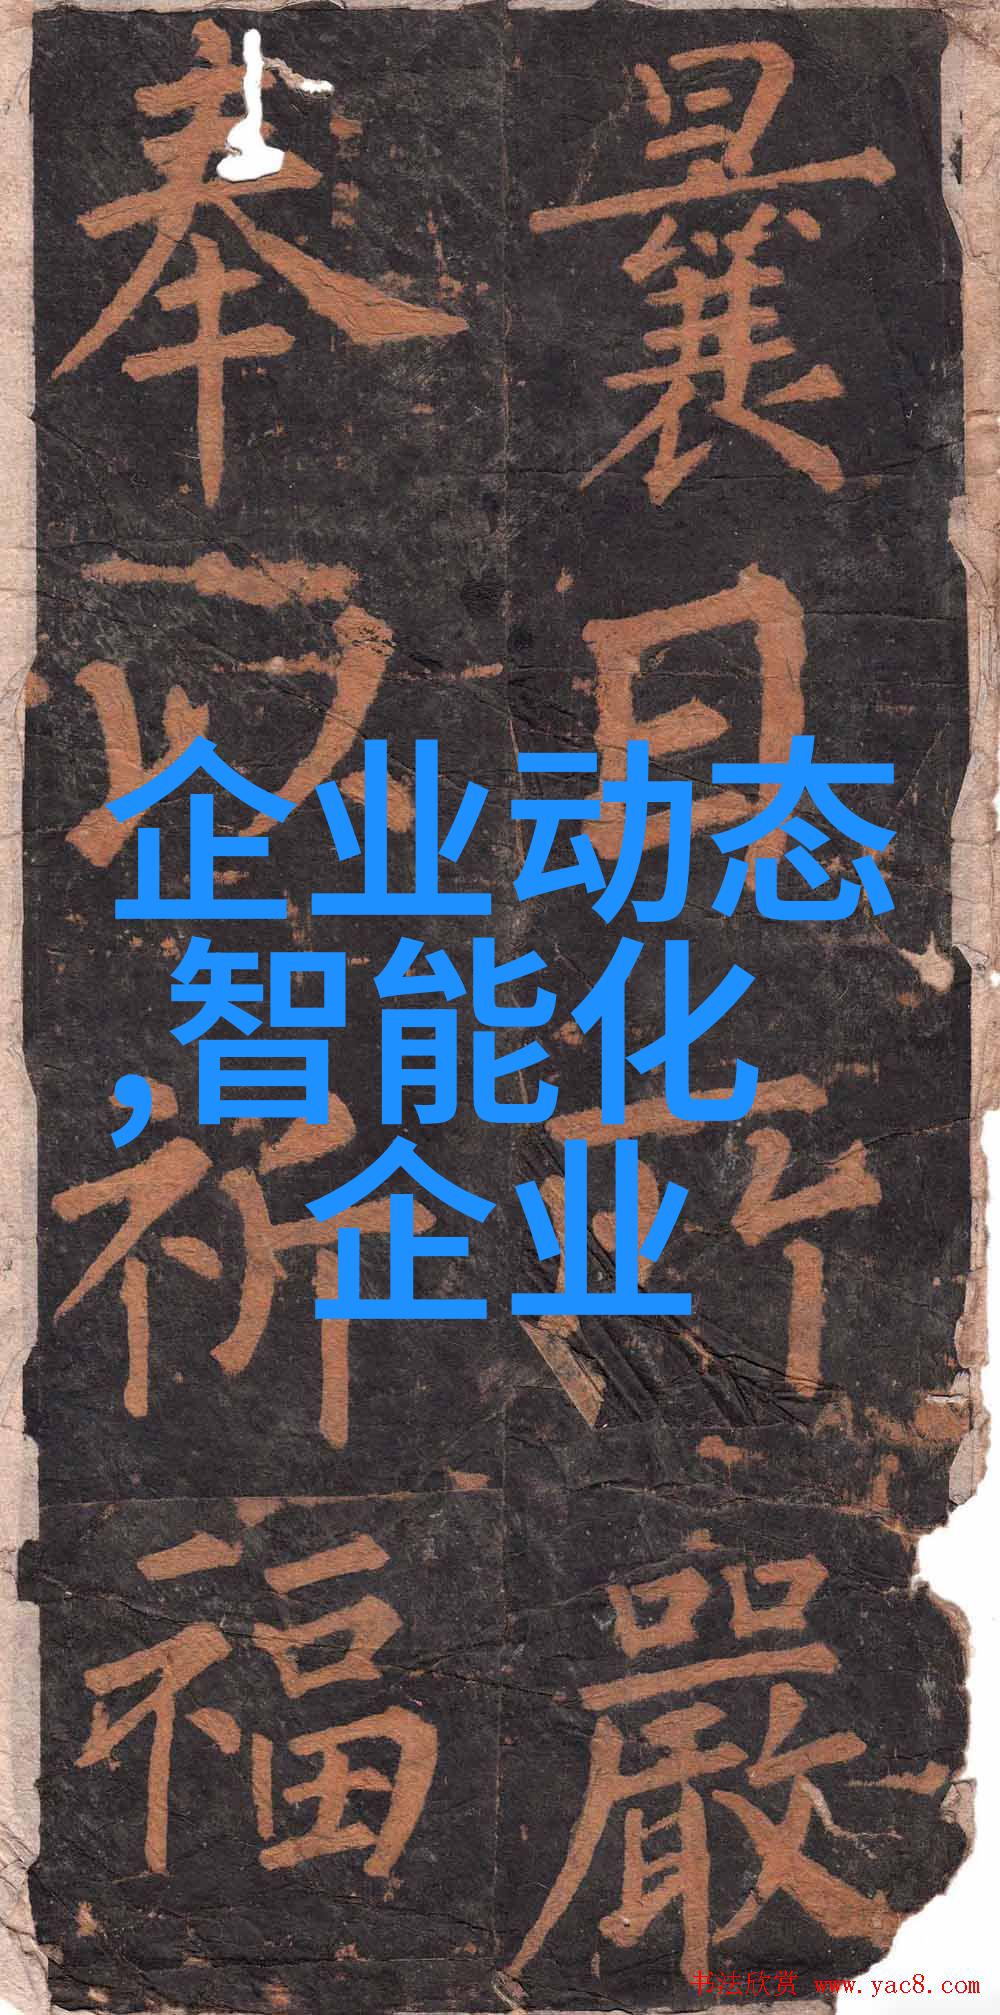 曩日所嚴
奉以祈福
企业动态
,智能化
企业
书法欣赏 www.yac8.com